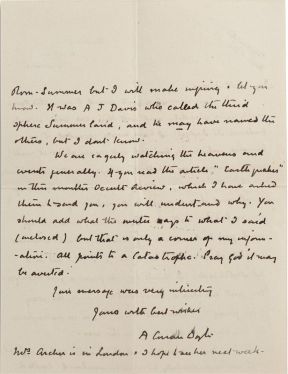 Summer but I will make inquiry & let you
know. It was A J Davis who called the third
sphere Summerland, and he may have named the
others, but I dont know.
We are eagerly watching the heavens and
events generally. If you read the article, "Earthquakes"
in this months Occult Review, which I have asked
them to send you, you will understand why. You
should add what the writer says to what I said
(enclosed) but that is only a corner of my inform-
-ation. All points to a Catastrophe. Pray God it may
be averted.
Your message was very interesting
Yours with best wishes
A Conan Doyle
Mrs Archer is in London & I hope to see her next week.